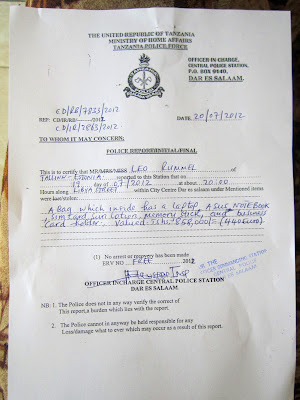 THE UNITED REPUBLIC OF TANZANIA
MINISTRY OF HOME AFFAIRS
TANZANIA POLICE FORCE
OFFICER IN-CHARGE,
CENTRAL POLICE STATION,
P.O. BOX 9140,
DAR ES SALAAM.
CD/RB/7833/2012
REF: CD/IR/RB/--------/2012
CD/IR/2863/2012
DATE. 20/07/2012
TO WHOM IT MAY CONCERN:
POLICE REPORT INITIAL/FINAL
This is to certify that MR/MRS/MISS LEO RUMMEL of
TALLINN - ESTONIA reported to this Station that on
19 day of 07/2012 at about 20:00
Hours along LIBYA STREET within City Centre Dar es salaam the Mentioned items
were lost/stolen:
A Bag which inside has a laptop, Asus NOTEBOOK
Simcard, Sun Lotion, Memory Stick, and business
Card holder. Valued Tshs. 858,000/= (440 Euro)
(1) No arrest or recovery has been made
ERV NO FREE 2012
INSP
OFFICER INCHARGE CENTRAL POLICE STATION
DAR ES SALAAM
NB: 1. The Police does not in any way verify the correct of
This report, a borden which lies with the report.
2. The Police cannot in anyway be held responsible for any
Loss/damage what to ever which may occur as a result of this report.